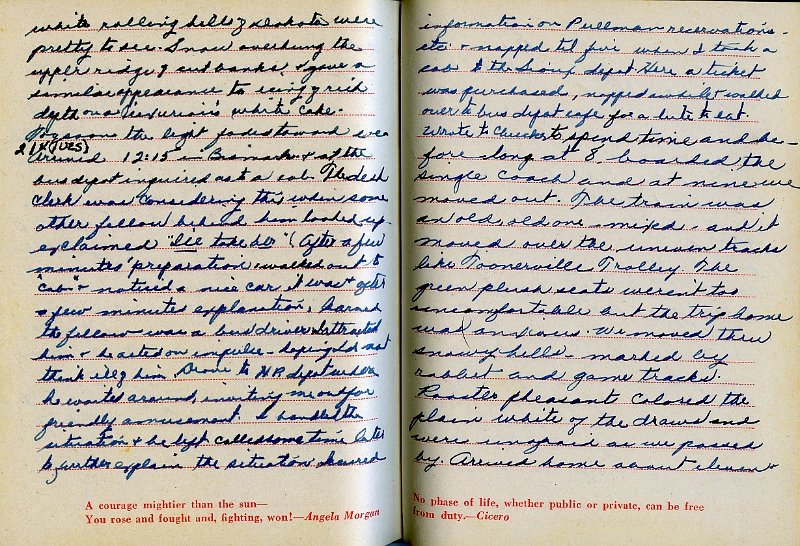 white rolling hills of Dakota were
pretty to see. Snow overhung the
upper ridge of cut banks & gave a
similar appearance to icing of rich
depth on a luxurious white cake.
soon the light faded toward
21 (TUES)
Arrived 12:15 in Bismark & at the
bus depot inquired as to a cab. The desk
clerk was considering this when some
other fellow behind him looked up &
exclaimed "I'll take her"! After a few
minutes' preparation, walked out to
"cab" & noticed a nice car it was & after
a few minutes explanation, learned
the fellow was a bus driver. I attracted
him & he acted on impulse - hoping I'd not
think ill of him. Drove to N.P. depot where
he waited around, inviting me out for
friendly amusement. I handled the
situation & he left. Called some time later
to further explain the situation. Secured
information on Pullman reservations
etc. & napped til five when I took a
cab to the Soo depot. Here a ticket
was purchased, napped awhile & walked
over to bus depot cafe for a bite to eat.
Wrote to Chuck to spend time and be-
fore long at 8 boarded the
single coach and at nine we
moved out. The train was
an old, old one - mixed - and it
moved over the uneven tracks
like Toonerville Trolley. The
green plush seats weren't too
uncomfortable but the trip home
was anxious. We moved thru
snowy hills - marked by
rabbit and game tracks.
Rooster pheasant colored the
plain white of the draws and
were unafraid as we passed
by. Arrived home about eleven &
A courage mightier than the sun—
You rose and fought and, fighting, won!—Angela Morgan
No phase of life, whether public or private, can be free
from duty.—Cicero